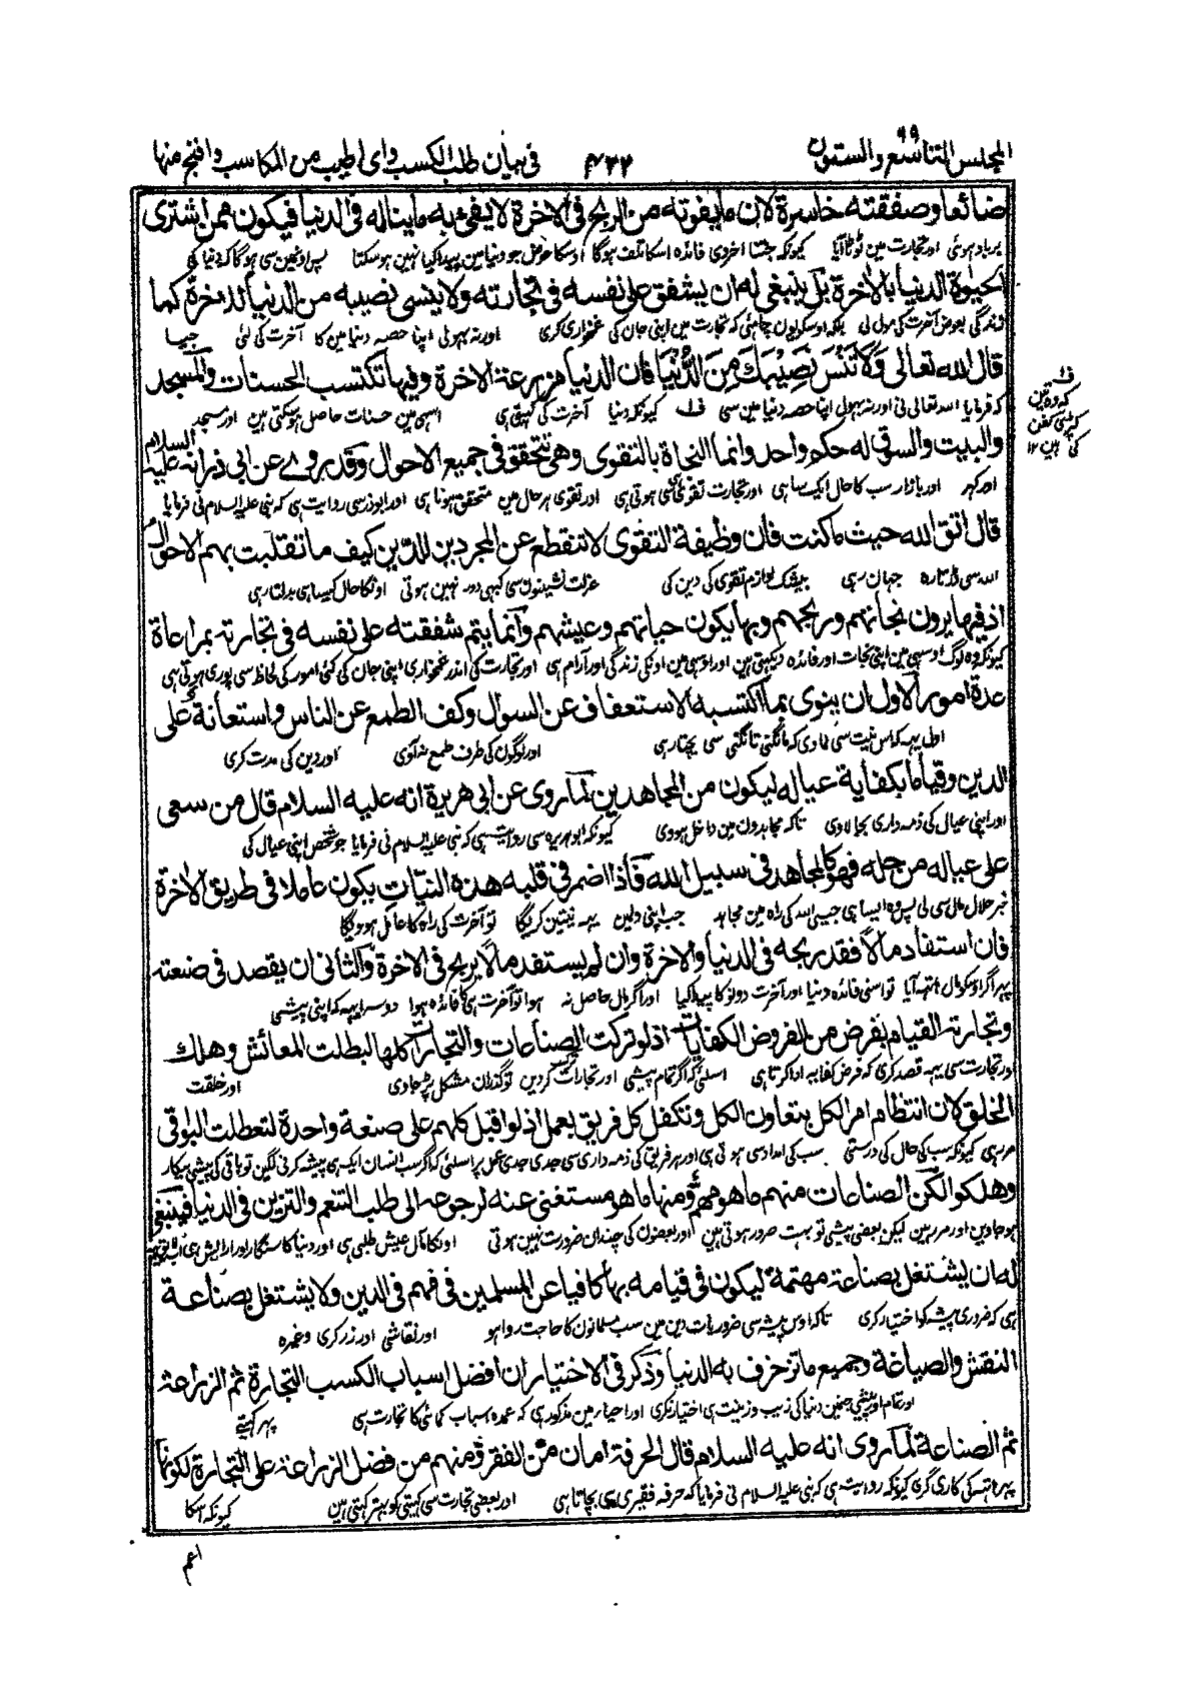 المجلس التاسع والستون ۶۹
۴۳۲
فى بيان طلب الكسب واى اطيب من المكاسب واقبح منها
ضائعا وصفقته خاسرة لان ما يفوته من الربح فى الاخرة لا يفى به ما يناله فى الدنيا فيكون ممن اشترى
برباد ہوئی اور تجارت مین ٹوٹا آیا کیونکہ جتنا اخروی فائدہ اسکا تلف ہوگا اوسکا عوض جو دنیا مین پیدا کیا نہین ہوسکتا پس اونھین سی ہوگا کہ دنیا کی
الحيوة الدنيا بالاخرة بل ينبغى له ان يشفق على نفسه فى تجارته ولا ينسى نصيبه من الدنيا للاخرة كما
زندگی بعوض آخرت کی مول لی بلکہ اوسکو یون چاہئی کہ تجارت مین اپنی جان کی غمخواری کری اور نہ بہولی اپنا حصہ دنیا مین کا آخرت کی لئی جیسا
قال الله تعالى وَلَا تَنْسَ نَصِيْبَكَ مِنَ الدُّنْيَا فان الدنيا مزرعة الاخرة وفيها تكتسب الحسنات والمسجد
کہ فرمایا اللہ تعالی نی اور نہ بہولی اپنا حصہ دنیا مین سی ف کیونکہ دنیا آخرت کی کہیتی ہی اسی مین حسنات حاصل ہوسکتی ہین اور مسجد
ف
کہ وہ تین
کپڑی کفن
کی ہین ۱۲
والبيت والسوق له حكم واحد وانما النجاة بالتقوى وهى تتحقق فى جميع الاحوال وقد روى عن ابى ذر انه عليه السلام
اور گہر اور بازار سب کا حال ایک سا ہی اور نجات تقوی ہی سی ہوتی ہی اور تقوی ہر حال مین متحقق ہوتا ہی اور ابوذر سی روایت ہی کہ نبی علیہ السلام نی فرمایا
قال اتق الله حيث ما كنت فان وظيفة التقوى لا تنقطع عن المجردين للدين كيف ما تقلبت بهم الاحوال
اللہ سی ڈرتا رہ جہان رہی بیشک لوازم تقوی کی دین کی عزلت نشینون سی کبہی دور نہین ہوتی اونکا حال کیسا ہی بدلتا رہی
اذ فيها يرون نجاتهم وربحهم وبها يكون حياتهم وعيشهم وانما يتم شفقته على نفسه فى تجارته بمراعاة
کیونکہ وہ لوگ اوسہی مین اپنی نجات اور فائدہ دیکہتی ہین اور اوسی مین اونکی زندگی اور آرام ہی اور تجارت کی اندر غمخواری اپنی جان کی کئی امور کی لحاظ سی پوری ہوتی ہی
عدة امور الاول ان ينوى بما اكتسبه الاستعفاف عن السوال وكف الطمع عن الناس واستعانة على
اول یہہ کہ اس نیت سی کماوی کہ مانگنی تانگنی سی بچتا رہی اور لوگون کی طرف طمع نہ آوی اور دین کی مدد کری
الدين وقياما بكفاية عياله ليكون من المجاهدين لما روى عن ابى هريرة انه عليه السلام قال من سعى
اور اپنی عیال کی ذمہ داری بجا لاوی تاکہ مجاہدون مین داخل ہووی کیونکہ ابوہریرہ سی روایت ہی کہ نبی علیہ السلام نی فرمایا جو شخص اپنی عیال کی
على عياله من حله فهو كالمجاهد فى سبيل الله فاذا اضمر فى قلبه هذه النيات يكون عاملا فى طريق الاخرة
خبر حلال مال سی لی پس وہ ایسا ہی جیسی اللہ کی راہ مین مجاہد جب اپنی دل مین یہہ نیتین کریگا تو آخرت کی راہ کا عامل ہوویگا
فان استفاد مالا فقد ربحه فى الدنيا والاخرة وان لم يستفد مالا يربح فى الاخرة والثانى ان يقصد فى صنعته
پہر اگر اوسکو مال ہاتہہ آیا تو اسنی فائدہ دنیا اور آخرت دونو کا پیدا کیا اور اگر مال حاصل نہ ہوا تو آخرت ہی کا فائدہ ہوا دوسرا یہہ کہ اپنی پیشی
وتجارته القيام بفرض من الفروض الكفايات اذ لو تركت الصناعات والتجارات كلها لبطلت المعائش وهلك
اور تجارت سی یہہ قصد کری کہ فرض کفایہ ادا کرتا ہی اسلئی کہ اگر تمام پیشی اور تجارت ترک کردین تو گذران مشکل پڑ جاوی اور خلقت
الخلق لان انتظام امر الكل بتعاون الكل وتكفل كل فريق بعمل اذ لو اقبل كلهم على صنعة واحدة لتعطلت البواقى
مر رہی کیونکہ سب کی حال کی درستی سب کی امداد سی ہوتی ہی اور ہر فریق کی ذمہ داری سی جدی جدی عمل پر اسلئی کہ اگر سب انسان ایک ہی پیشہ کرنی لگین تو باقی کی پیشی بیکار
وهلكوا لكن الصناعات منهم ما هو مهم ومنها ما هو مستغنى عنه لرجوعه الى طلب التنعم والتزين فى الدنيا فينبغى
ہوجاوین اور مر رہین لیکن بعضی پیشی تو بہت ضرور ہوتی ہین اور بعضون کی چندان ضرورت نہین ہوتی اونکا مآل عیش طلبی ہی اور دنیا کا سنگار اور آرایش ہی
له ان يشتغل بصناعة مهتمة ليكون فى قيامه بها كافيا عن المسلمين فى فهم فى الدين ولا يشتغل بصناعة
ہی کہ ضروری پیشہ کو اختیار کری تاکہ اوس پیشہ سی ضروریات دین مین سب مسلمانون کا حاجت روا ہو اور نقاشی اور زرگری وغیرہ
النقش والصياغة وجميع ما تزخرف به الدنيا وذكر فى الاختيار ان افضل اسباب الكسب التجارة ثم الزراعة
اور تمام اور پیشی جنمین دنیا کی زیب و زینت ہی اختیار نکری اور اختیار مین مذکور ہی کہ عمدہ اسباب کمائی کا تجارت ہی پہر کہیتی
ثم الصناعة لما روى انه عليه السلام قال الحرفة امان من الفقر ومنهم من فضل الزراعة على التجارة لكونها
پہر ہاتہہ کی کاری گری کیونکہ روایت ہی کہ نبی علیہ السلام نی فرمایا کہ حرفہ فقیری سی بچاتا ہی اور بعضی تجارت سی کہیتی کو بہتر کہتی ہین کیونکہ اسکا
اعم